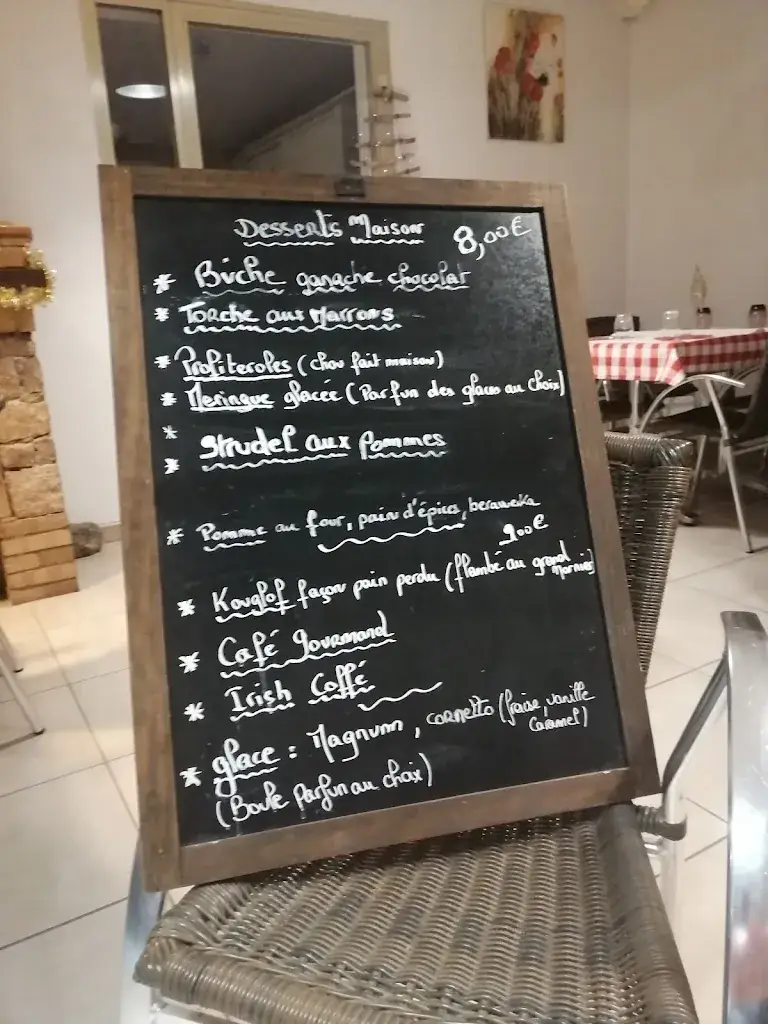 Desserts Maison 8,00€
* Bûche ganache chocolat
* Torche aux Marrons
* Profiteroles (chou fait maison)
* Meringue glacée (Parfun des glaces au choix)
*
* Strudel aux Pommes
* Pomme au four, pain d'épices, beraweka
9,00€
* Kouglof façon pain perdu (flambé au grand Marnier)
* Café gourmand
* Irish Coffé
* glace : Magnum, cornetto (fraise, vanille
caramel)
(Boule Parfun au choix)